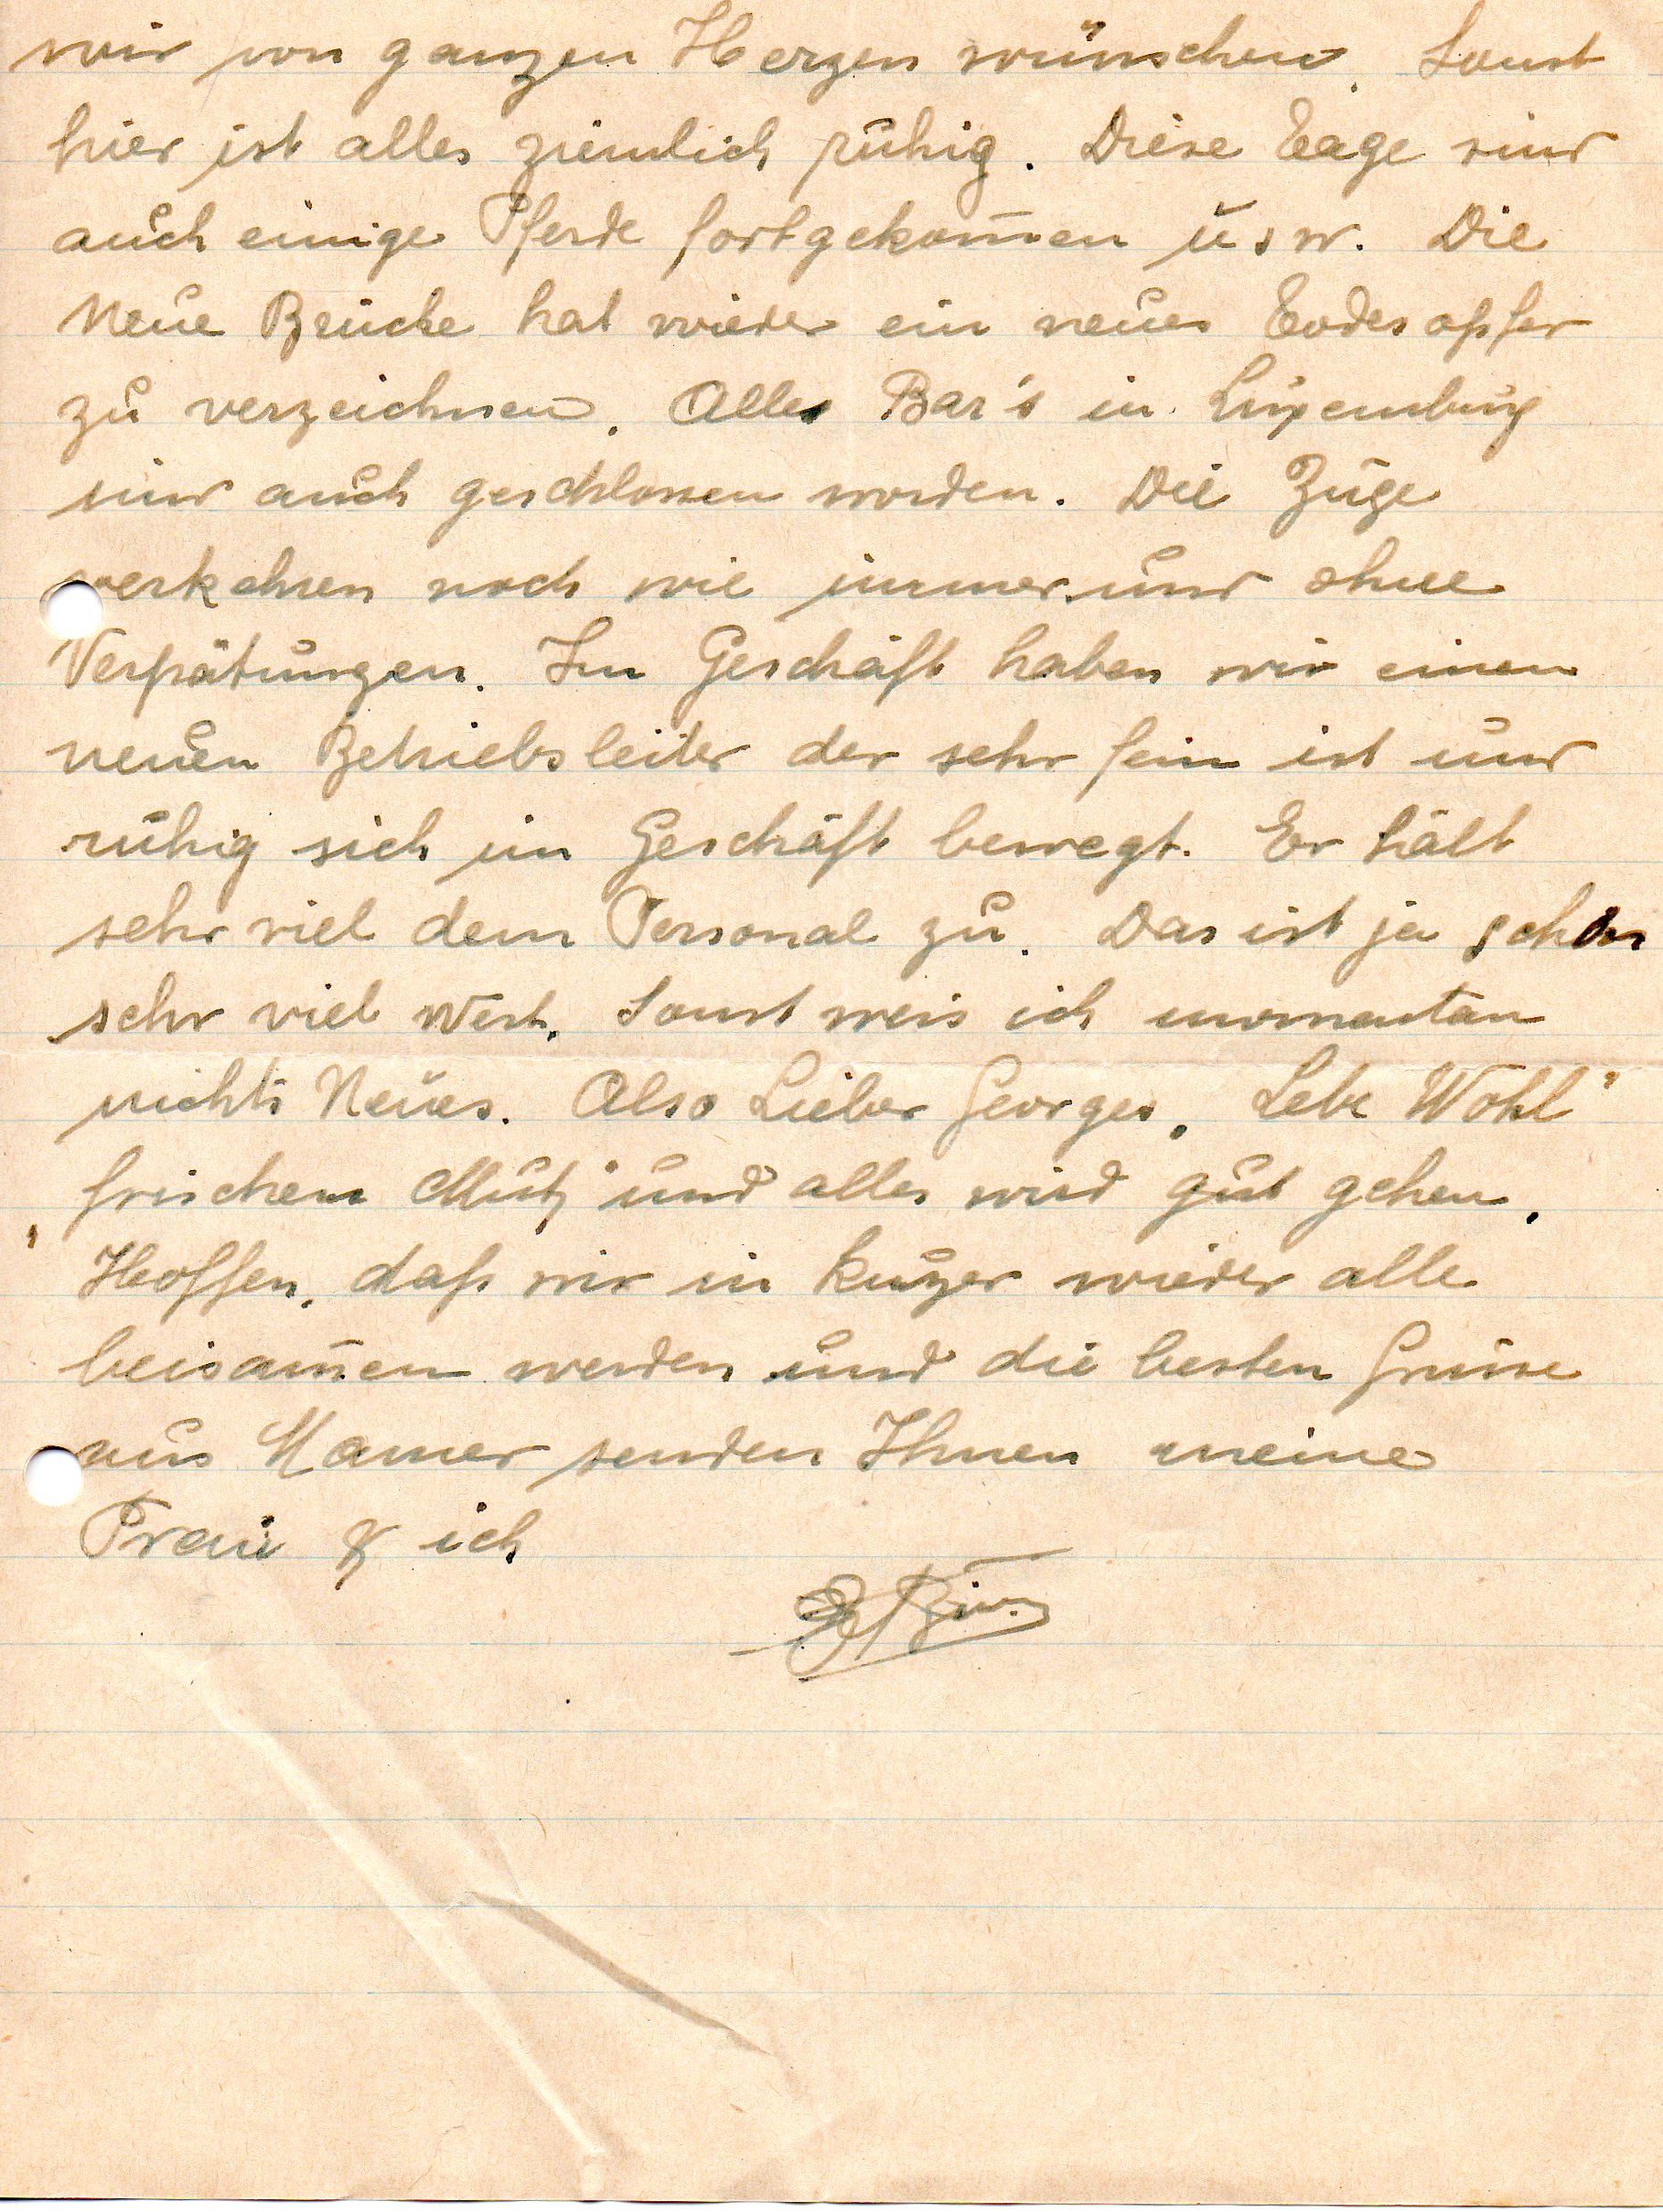 wir von ganzen Herzen wünschen. Sonst
hier ist alles ziemlich ruhig. Diese Tage sind
auch einige Pferde fortgekom̅en usw. Die
Neue Brücke hat wieder ein neues Todesopfer
zu verzeichnen. Alles Bar's in Luxemburg
sind auch geschlossen worden. Die Züge
verkehren noch wie immer und ohne
Verspätungen. Im Geschäft haben wir einen
neuen Betriebsleiter der sehr fein ist und
ruhig sich im Geschäft bewegt. Er hält
sehr viel dem Personal zu. Das ist ja schon
sehr viel Wert. Sonst weis ich momentan
nichts Neues. Also Lieber Georges, Lebe Wohl"
"frischen Mut" und alles wird gut gehen.
Hoffen, daß wir in kurzer wieder alle
beisam̅en werden und die besten Grüsse
aus Mamer senden Ihnen meine
Frau & ich